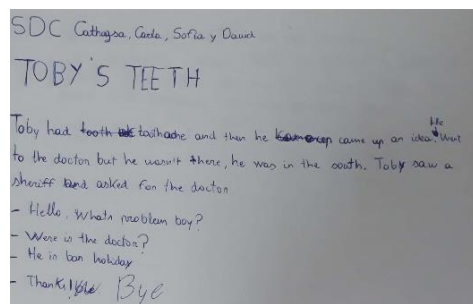 SDC Cathaysa, Carla, Sofía y David
TOBY'S TEETH
Toby had tooth toothache and then he came up came up an idea. He went
to the doctor but he wasn't there, he was in the south. Toby saw a
sheriff and asked for the doctor
- Hello. Whats problem boy?
- Were is the doctor?
- He in ban holiday
- Thanks! Bye